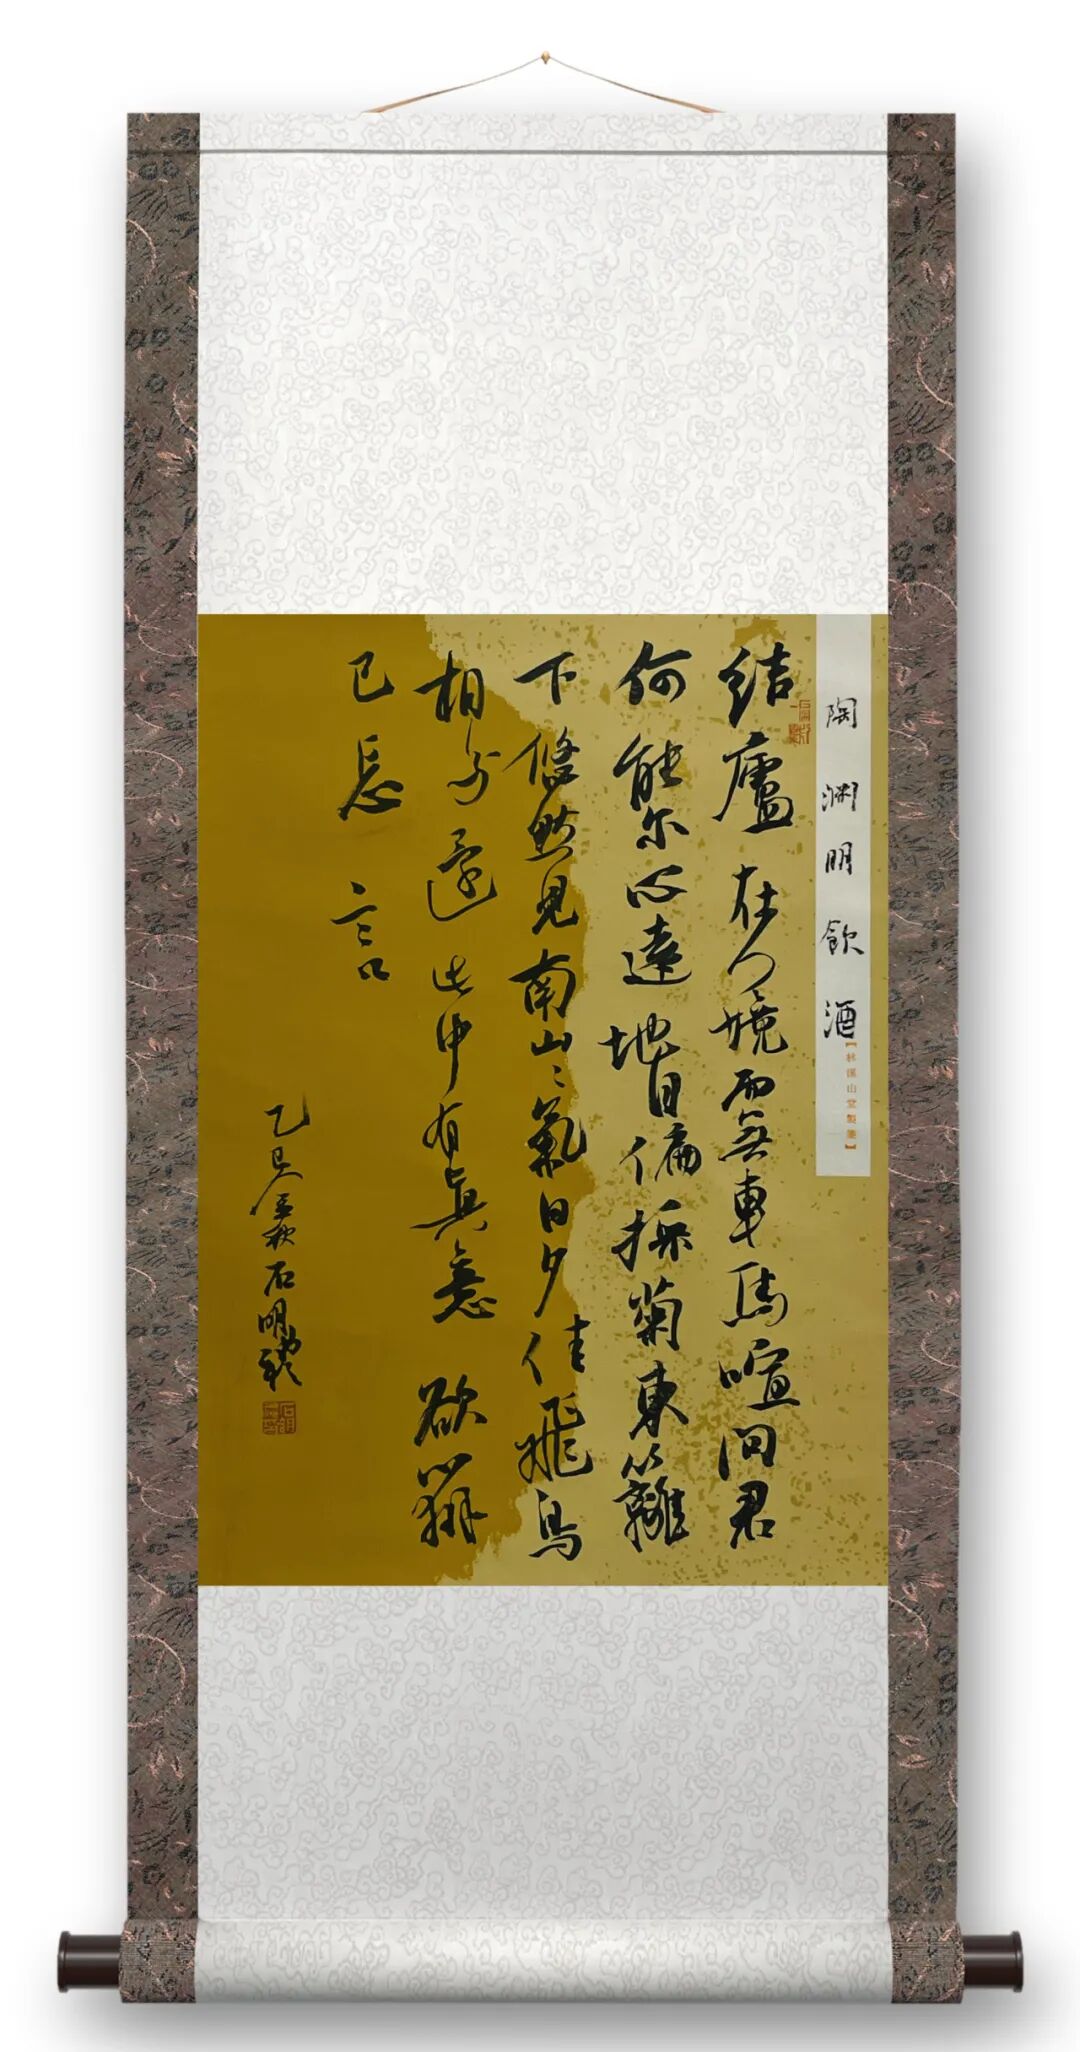 陶渊明飲酒
结廬在人境而無車馬喧问君
何能尔心遠地自偏採菊東籬
下悠然見南山〻氣日夕佳飛鳥
相与還此中有真意欲辯
已忘言
乙巳秋石明